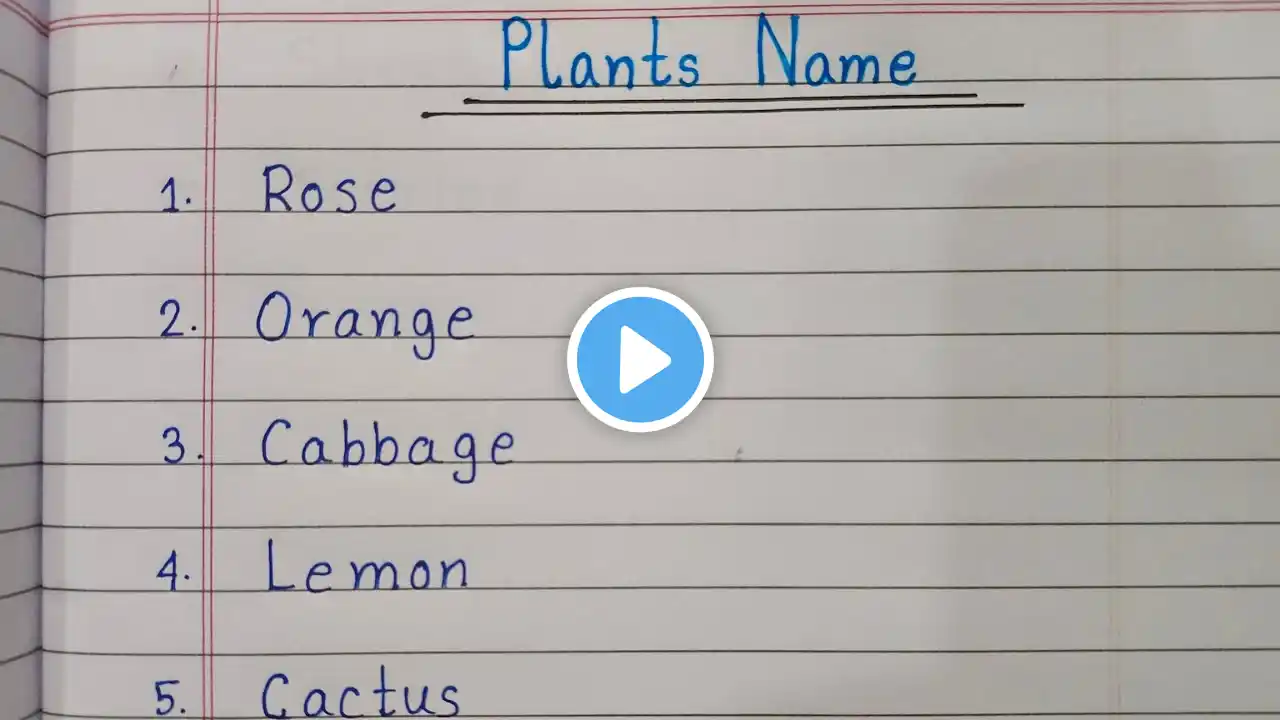 Plants Name
1. Rose
2. Orange
3. Cabbage
4. Lemon
5. Cactus